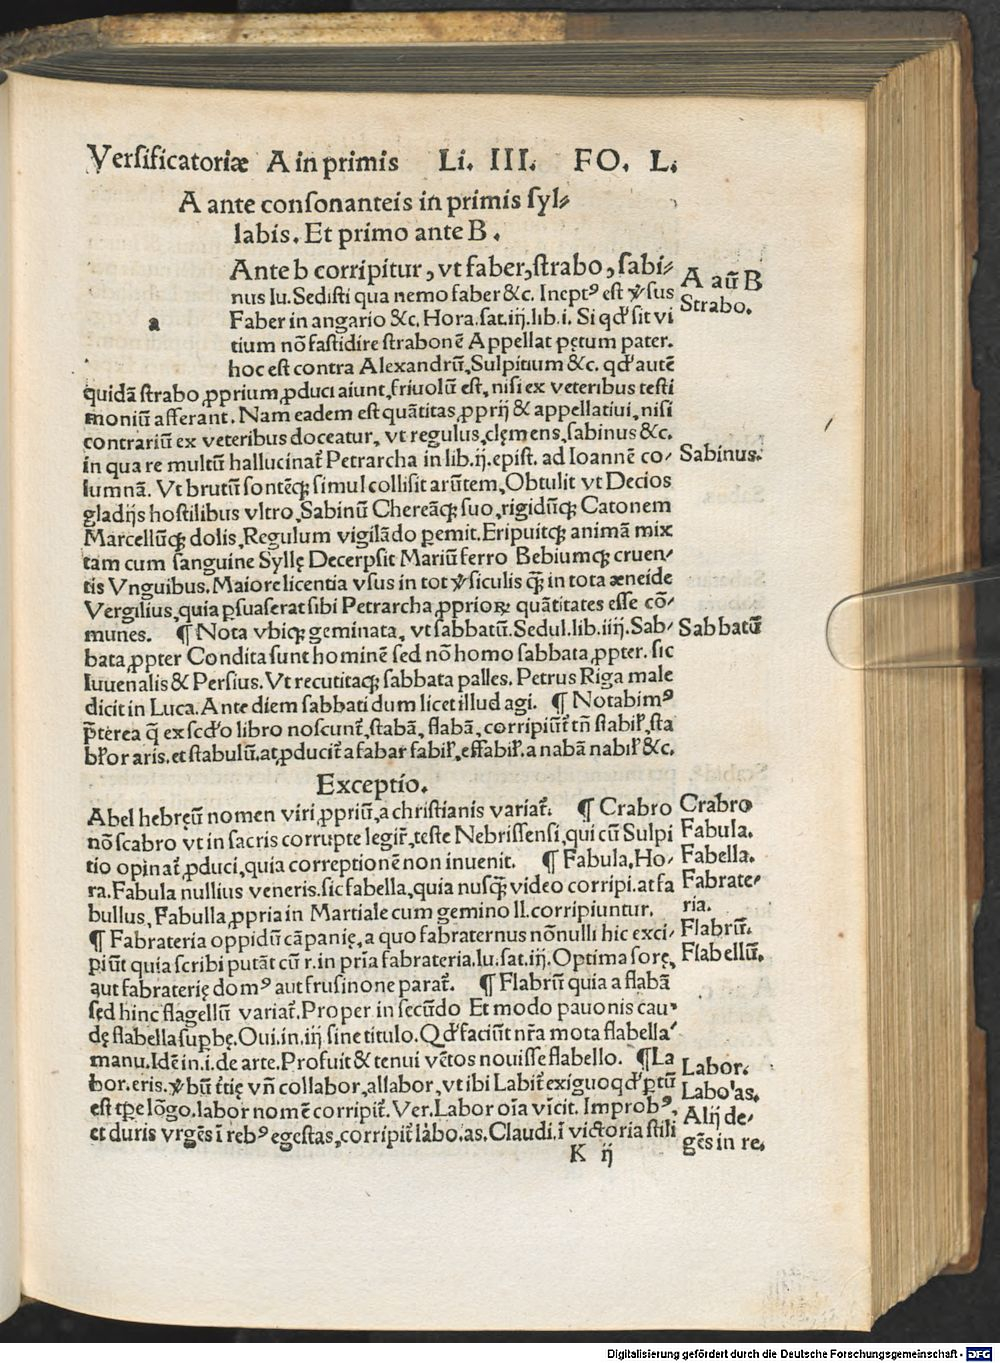 Versificatoriæ A in primis Li. III. FO. L.
A ante consonanteis in primis syl⸗
labis. Et primo ante B.
Ante b corripitur, vt faber, strabo, sabi⸗
A aū B
nus Iu. Sedisti qua nemo faber &c. Ineptꝰ est ꝟsus
Strabo.
a
Faber in angario &c. Hora. sat. iij. lib. i. Si qd' sit vi
tium nō fastidire strabonē Appellat pętum pater.
hoc est contra Alexandrū, Sulpitium &c. qd' autē
quidā strabo ꝓprium ꝓduci aiunt, friuolū est, nisi ex veteribus testi
moniū afferant. Nam eadem est quātitas ꝓprij & appellatiui, nisi
contrariū ex veteribus doceatur, vt regulus, clęmens, sabinus &c.
in qua re multū hallucinat̃ Petrarcha in lib. ij. epist. ad Ioannē co⸗
Sabinus.
lumnā. Vt brutū sontēqꝫ simul collisit arūtem, Obtulit vt Decios
gladijs hostilibus vltro, Sabinū Chereāqꝫ suo, rigidūqꝫ Catonem
Marcellūqꝫ dolis, Regulum vigilādo ꝑemit. Eripuitqꝫ animā mix
tam cum sanguine Syllę Decerpsit Mariū ferro Bebiumqꝫ cruen⸗
tis Vnguibus. Maiore licentia vsus in tot ꝟsiculis q̄ꝫ in tota æneide
Vergilius, quia ꝑsuaserat sibi Petrarcha ꝓprioꝝ quātitates esse cō⸗
munes. ¶ Nota vbiqꝫ geminata, vt sabbatū. Sedul. lib. iiij. Sab⸗
Sabbatū
bata ꝓpter Condita sunt hominē sed nō homo sabbata ꝓpter. sic
Iuuenalis & Persius. Vt recutitaqꝫ sabbata palles. Petrus Riga male
dicit in Luca. Ante diem sabbati dum licet illud agi. ¶ Notabimꝰ
p̄terea q̄ ex scd'o libro noscunt̃, stabā, flabā, corripiūt̃ tn̄ stabil', sta
bl'or aris. et stabulū. at ꝓducit̃ a fabar fabil', effabil'. a nabā nabil' &c.
Exceptio.
Abel hebręū nomen viri ꝓpriū, a christianis variat̃. ¶ Crabro
Crabro
nō scabro vt in sacris corrupte legir̃, teste Nebrissensi, qui cū Sulpi
Fabula.
tio opinat̃ ꝓduci, quia correptionē non inuenit. ¶ Fabula, Ho⸗
Fabella.
ra. Fabula nullius veneris. sic fabella, quia nusq̄ꝫ video corripi. at fa
Fabrate⸗
bullus, Fabulla ꝓpria in Martiale cum gemino ll. corripiuntur.
ria.
¶ Fabrateria oppidū cāpanię, a quo fabraternus nōnulli hic exci⸗
Flabrū.
piūt quia scribi putāt cū r. in pria fabrateria. Iu. sat. iij. Optima sorę,
Flabellū.
aut fabraterię domꝰ aut frusinone parat̃. ¶ Flabrū quia a flabā
sęd hinc flagellū variat̃. Proper in secūdo Et modo pauonis cau⸗
dę flabella suꝑbę. Oui. in. iij sine titulo. Qd' faciūt nr̄a mota flabella
manu. Idē in. i. de arte. Profuit & tenui vētos nouisse flabello. ¶ La
Labor.
bor. eris. ꝟbū t̃tię vn̄ collabor, allabor, vt ibi Labit̃ exiguo qd' ꝑtū
Labo'as.
est tꝑe lōgo. labor nomē corripit̃. Ver. Labor oīa vīcit. Improbꝰ,
Alij de⸗
et duris vrgēs ī rebꝰ egestas, corripit̃ labo. as. Claudi. ī victoria stili
gēs in re.
K ij
Digitalisierung gefördert durch die Deutsche Forschungsgemeinschaft - DFG